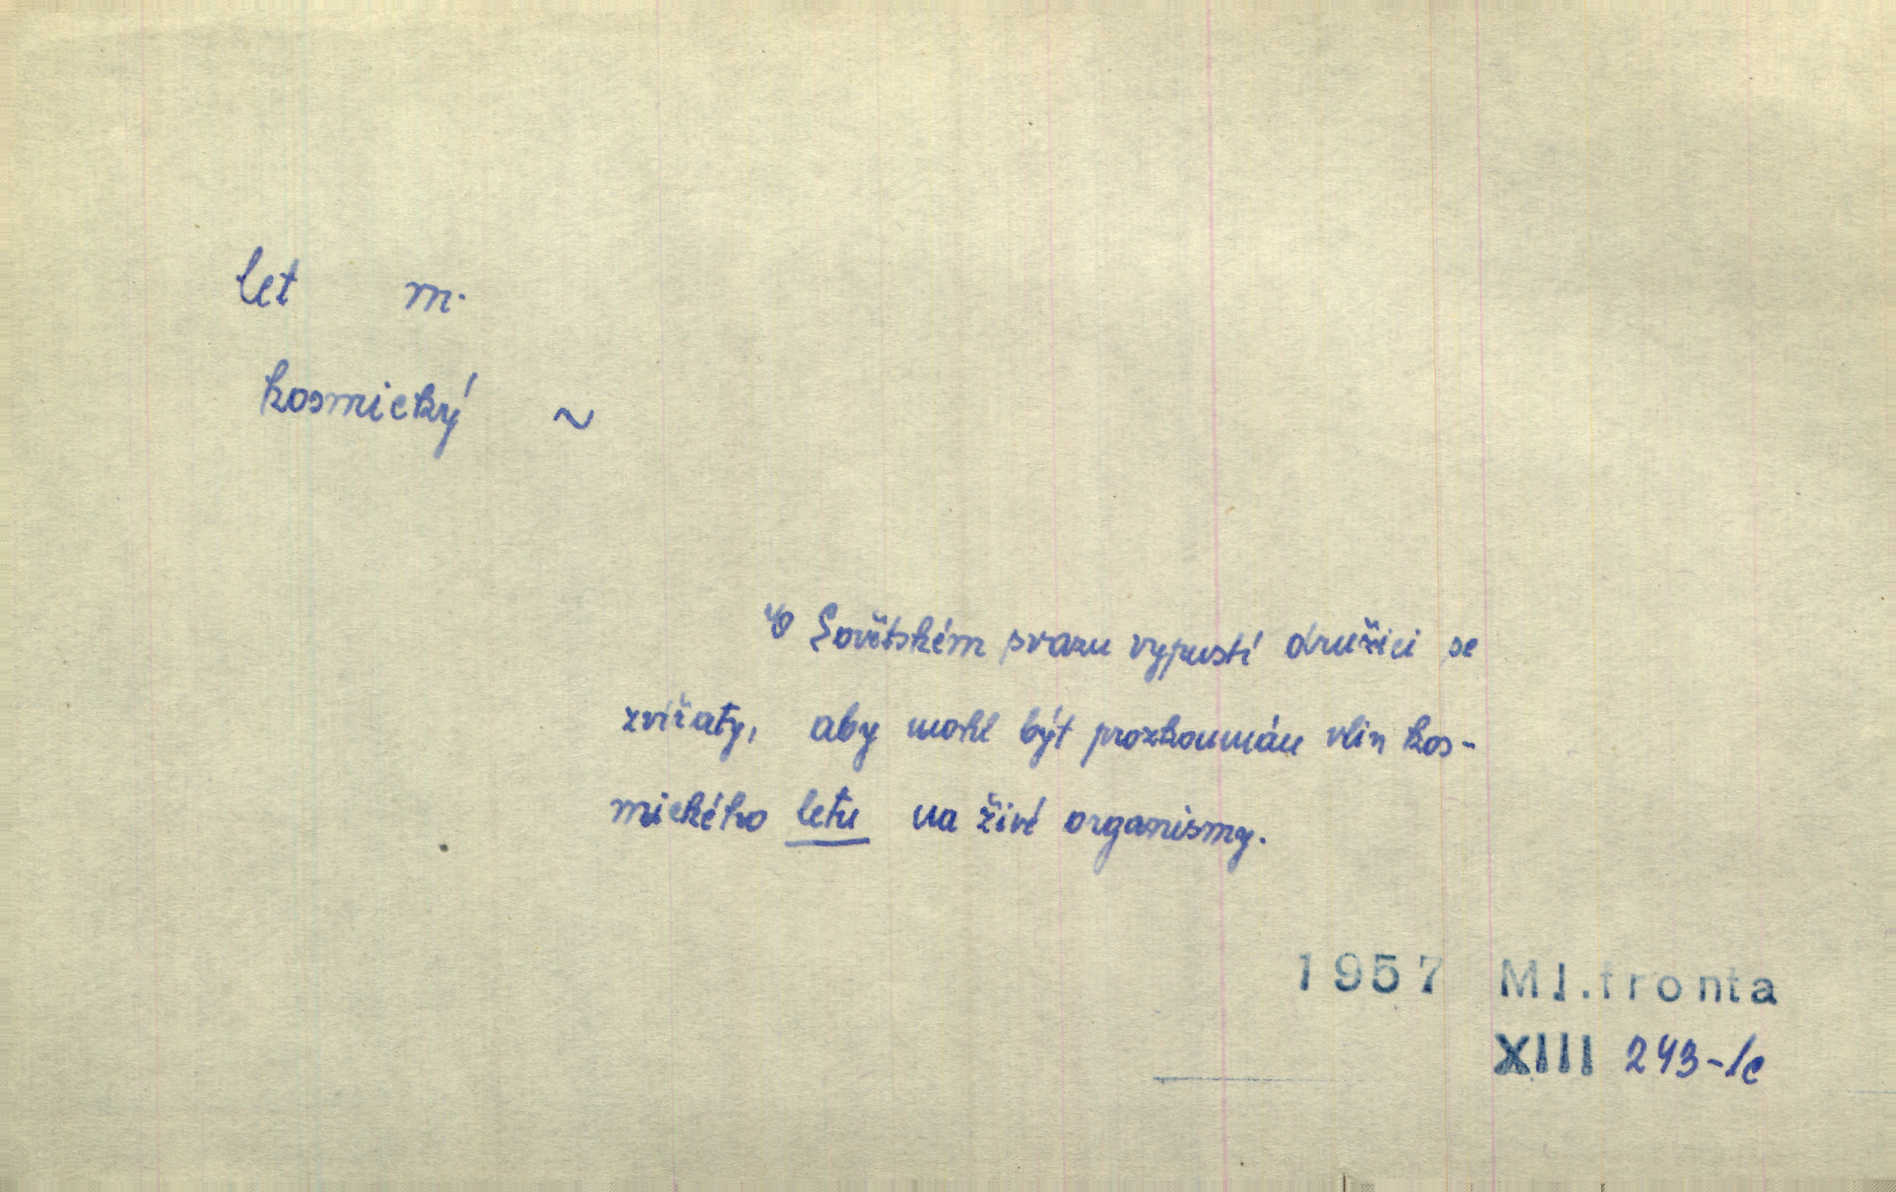 let m.
kosmický ~
V Sovětském svazu vypustí družici se
zvířaty, aby mohl být prozkoumán vliv kos-
mického letu na živé organismy.
1957 Ml.fronta
XIII 243-1c